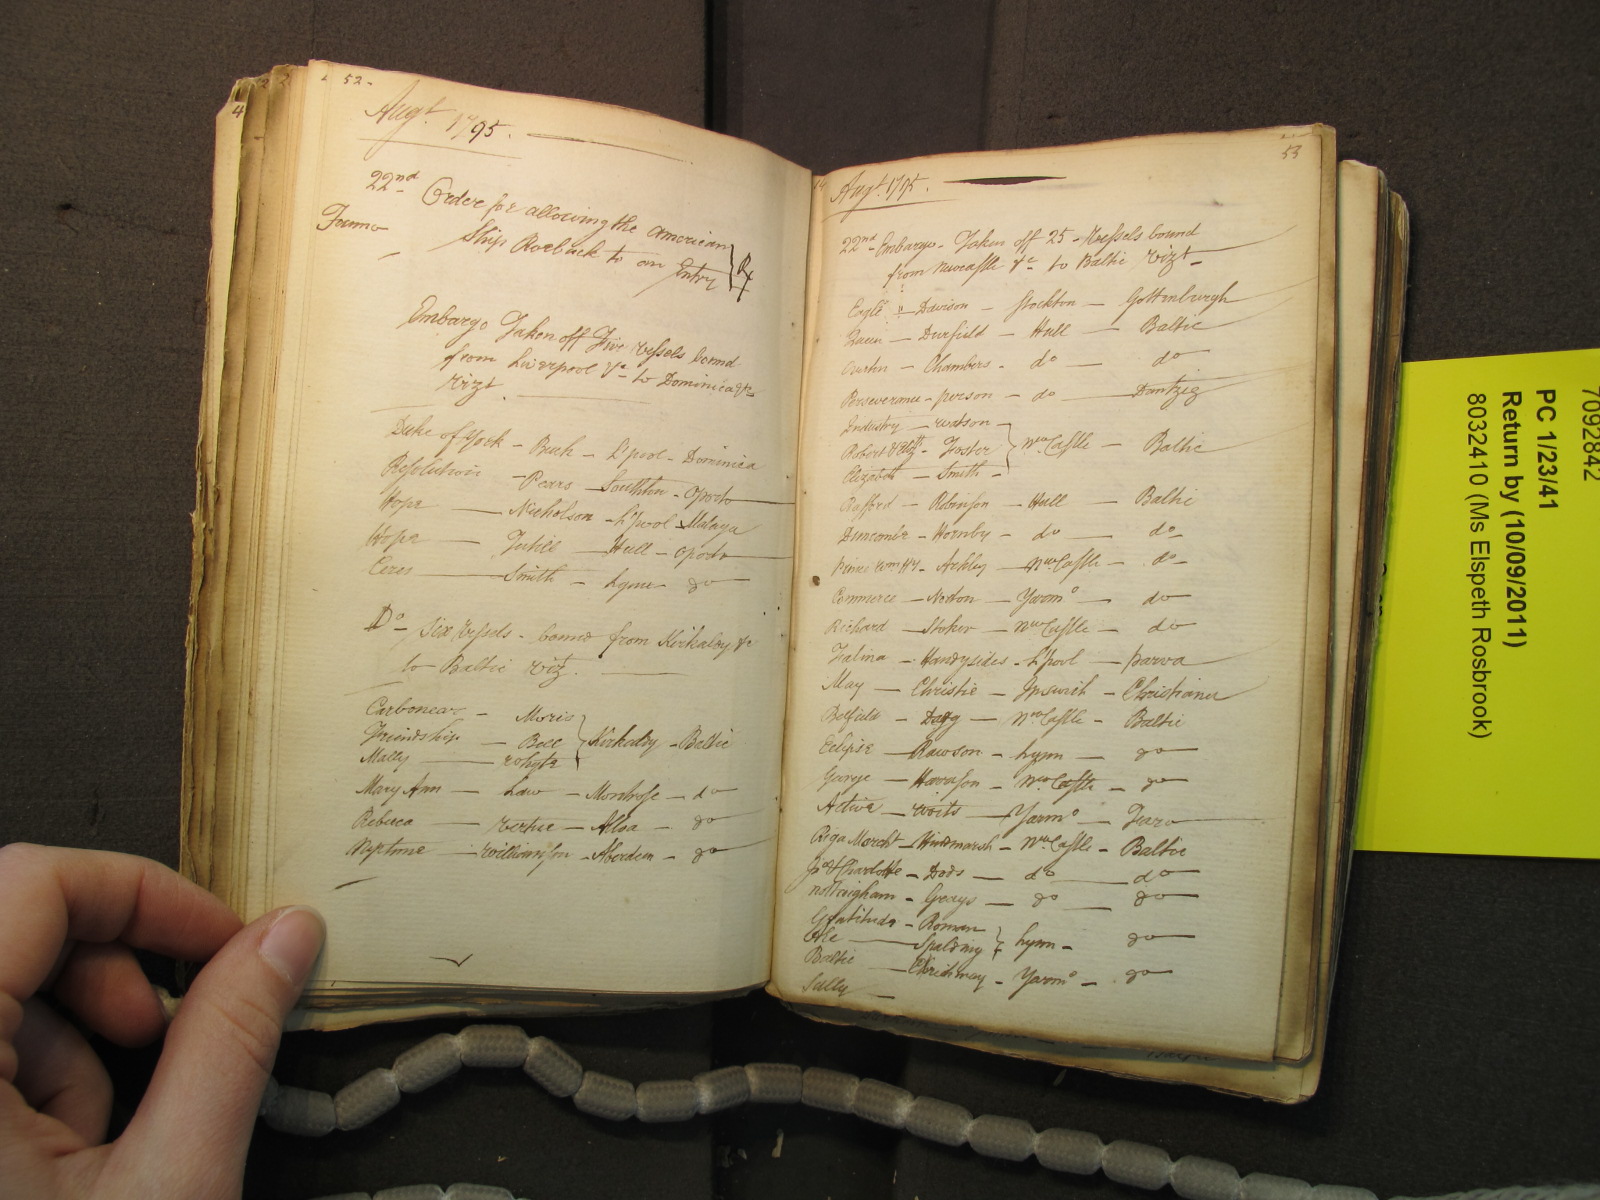 52-
Augt. 1795.
22nd Order for allowing the American
Ship Roeback to an Entry
Embargo Taken off Five vessels bound
from Liverpool &c to Dominica &c
vizt
Duke of York - Buch - L'pool - Dominica
Resolution - Pears - Southton - Oporto
Hope - Nicholson - L'pool - Malaga
Hope - Tutill - Hull - Oporto
Ceres - Smith - Lynn - do
Do Six vessels - bound from Kirkaldy &c
to Baltic vizt.
Carbonear - Moris
Friendship - Bell } Kirkaldy - Baltic
Mally - Whyte
Mary Ann - Law - Montrose - do
Rebecca - Vertue - Alloa - do
Neptune - Williamson - Aberdeen - do
53
Augt. 1795.
22nd Embargo Taken off 25 Vessels bound
from Newcastle &c to Baltic vizt
Eagle - Davison - Stockton - Gottenburgh
Queen - Durfield - Hull - Baltic
Chambers - do - do
Perseverance - person - do - Dantzig
Industry - Watson
Robert & Eliz - Foster } NwCastle - Baltic
Elizabeth - Smith
Robinson - Hull - Baltic
Duncombe - Hornby - do - do
Prince Wm Hy - Ackley - NwCastle - do
Commerce - Norton - Yarmo - do
Richard - Stoker - NwCastle - do
Handysides - L'pool
May - Christie - Ipswich - Christiana
Belfield - Dagg - NwCastle - Baltic
Eclipse - Rawson - Lynn - do
George - Harrison - NwCastle - do
Active - Woits - Yarmo
Riga Mercht - Hindmarsh - NwCastle - Baltic
Jno & Charlotte - Dods - do - do
Nottingham - Geays - do - do
Gratitude - Roman
Spalding } Lynn - do
Baltic - Yarmo - do
Sally
7092842
PC 1/23/41
Return by (10/09/2011)
8032410 (Ms Elspeth Rosbrook)